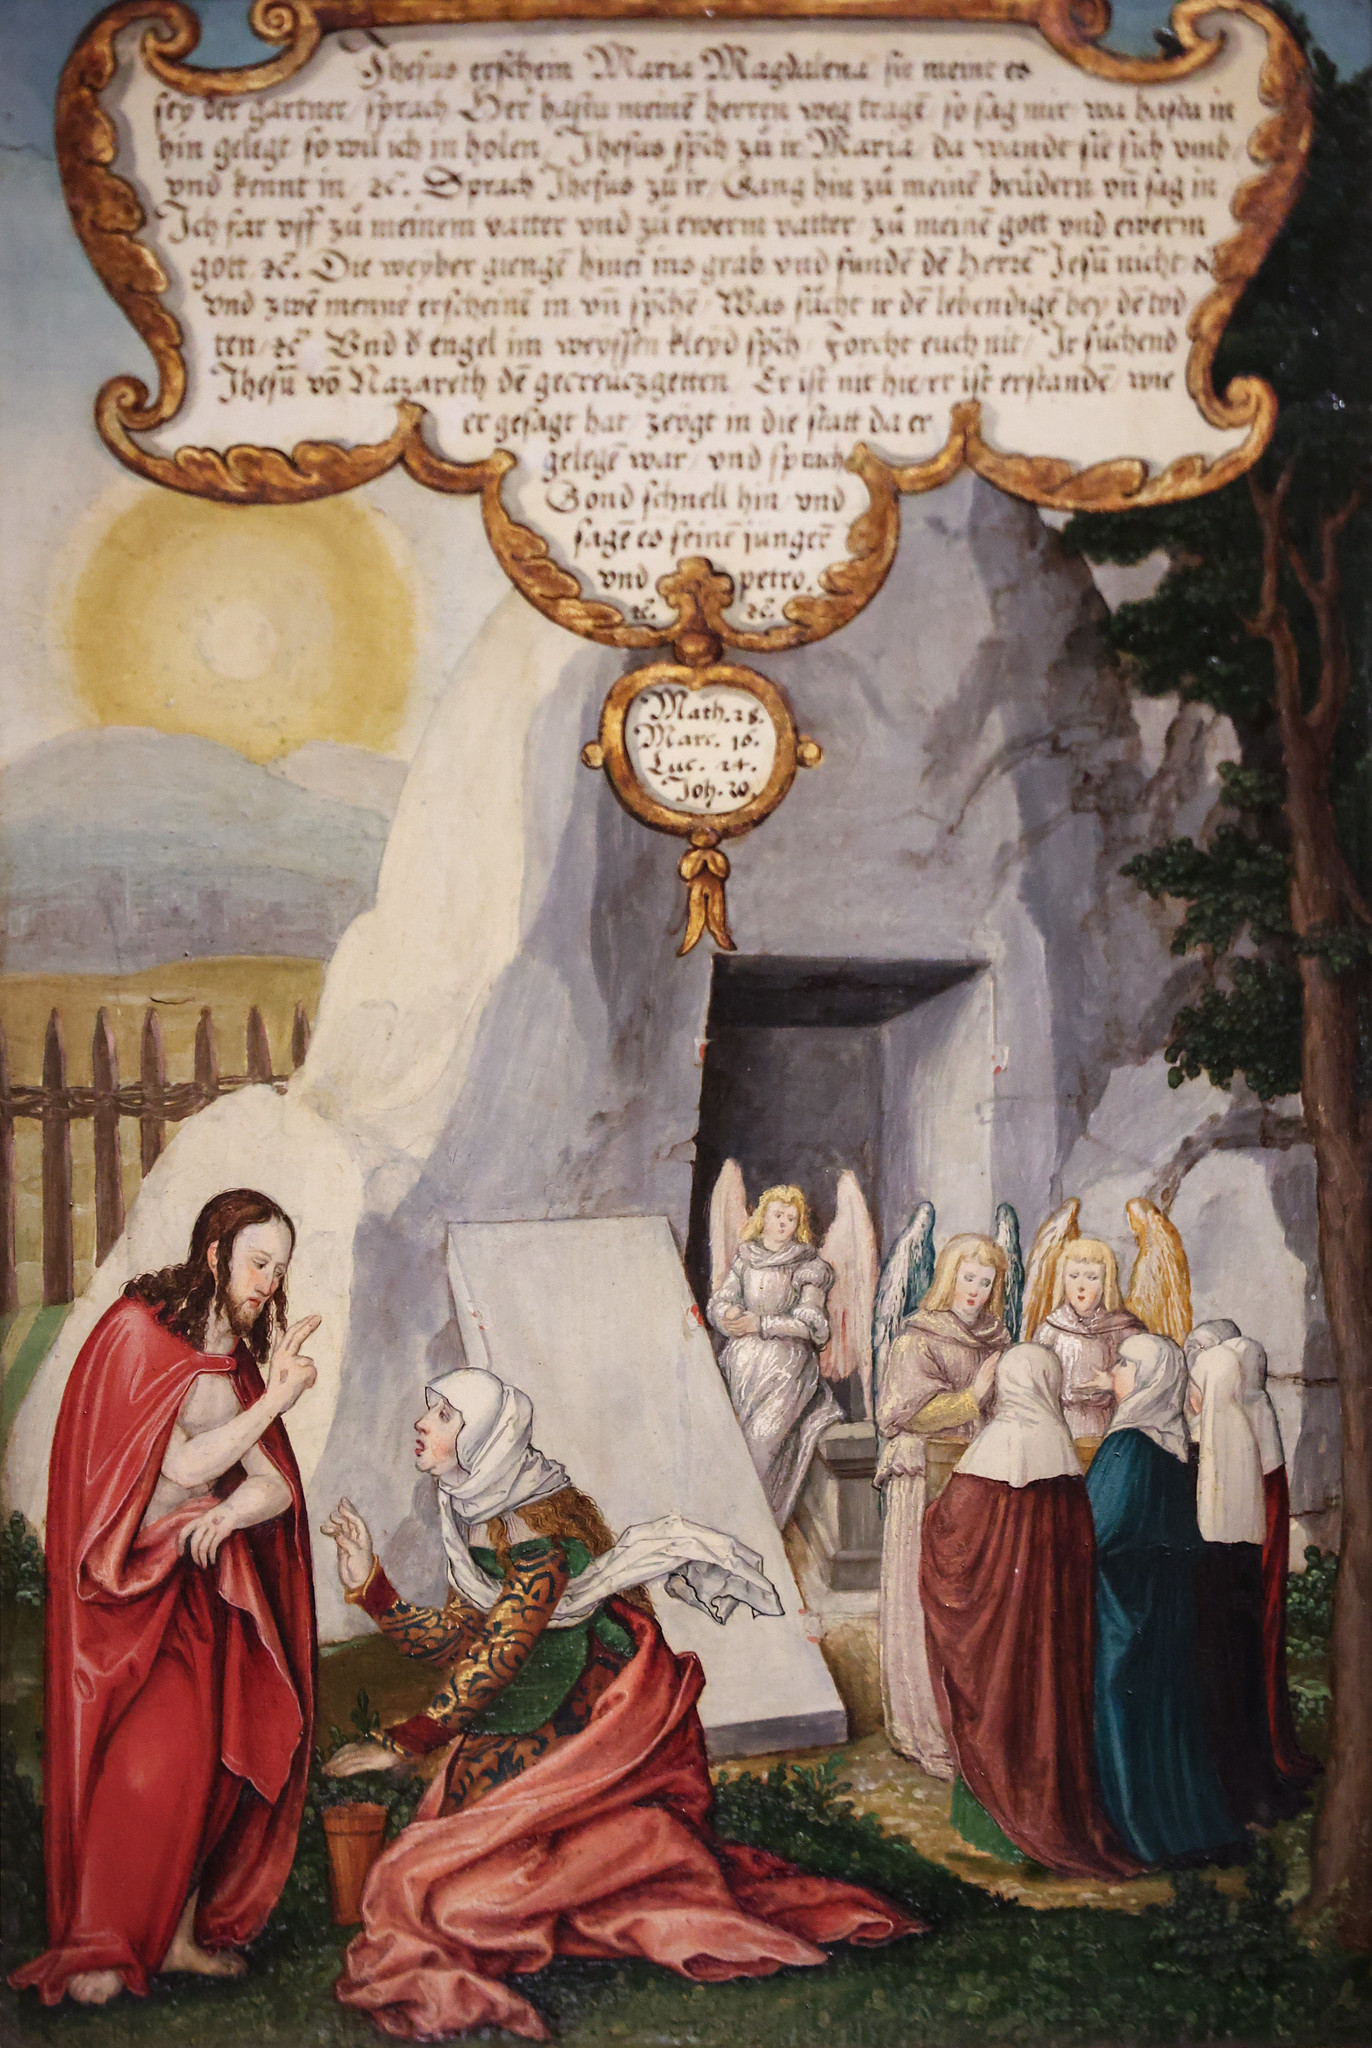 Jhesus erschein Maria Magdalena sie meint es
sey der gartner / sprach Her hastu meinē herren weg tragē / so sag mir wa hastu in
hin gelegt so wil ich in holen / Jhesus spch zů ir Maria / da wandt sie sich vmb /
vnd kennt in / ꝛc. Sprach Jhesus zů ir / Gang hin zů meinē brůdern vn̄ sag in
Ich far vff zů meinem vatter vnd zů ewerm vatter / zů meinē gott vnd ewerm
gott / ꝛc. Die weyber giengē hinei ins grab vnd fundē dē herrē Jesū nicht / ꝛc
vnd zwē menne erscheinē in vn̄ spchē / Was sůcht ir dē lebendigē bey dē tod
ten / ꝛc Vnd d engel im weyssen kleyd spch / Forcht euch nit / Ir sůchend
Jhesū vō Nazareth dē gecreuczgetten Er ist nit hie / er ist erstandē wie
er gesagt hat / zeygt in die statt da er
gelegē war / vnd sprach
Gond schnell hin vnd
sagē es seinē jungeē
vnd petro.
ꝛc. ꝛc.
Math. 28.
Marc. 16.
Luc. 24.
Joh. 20.